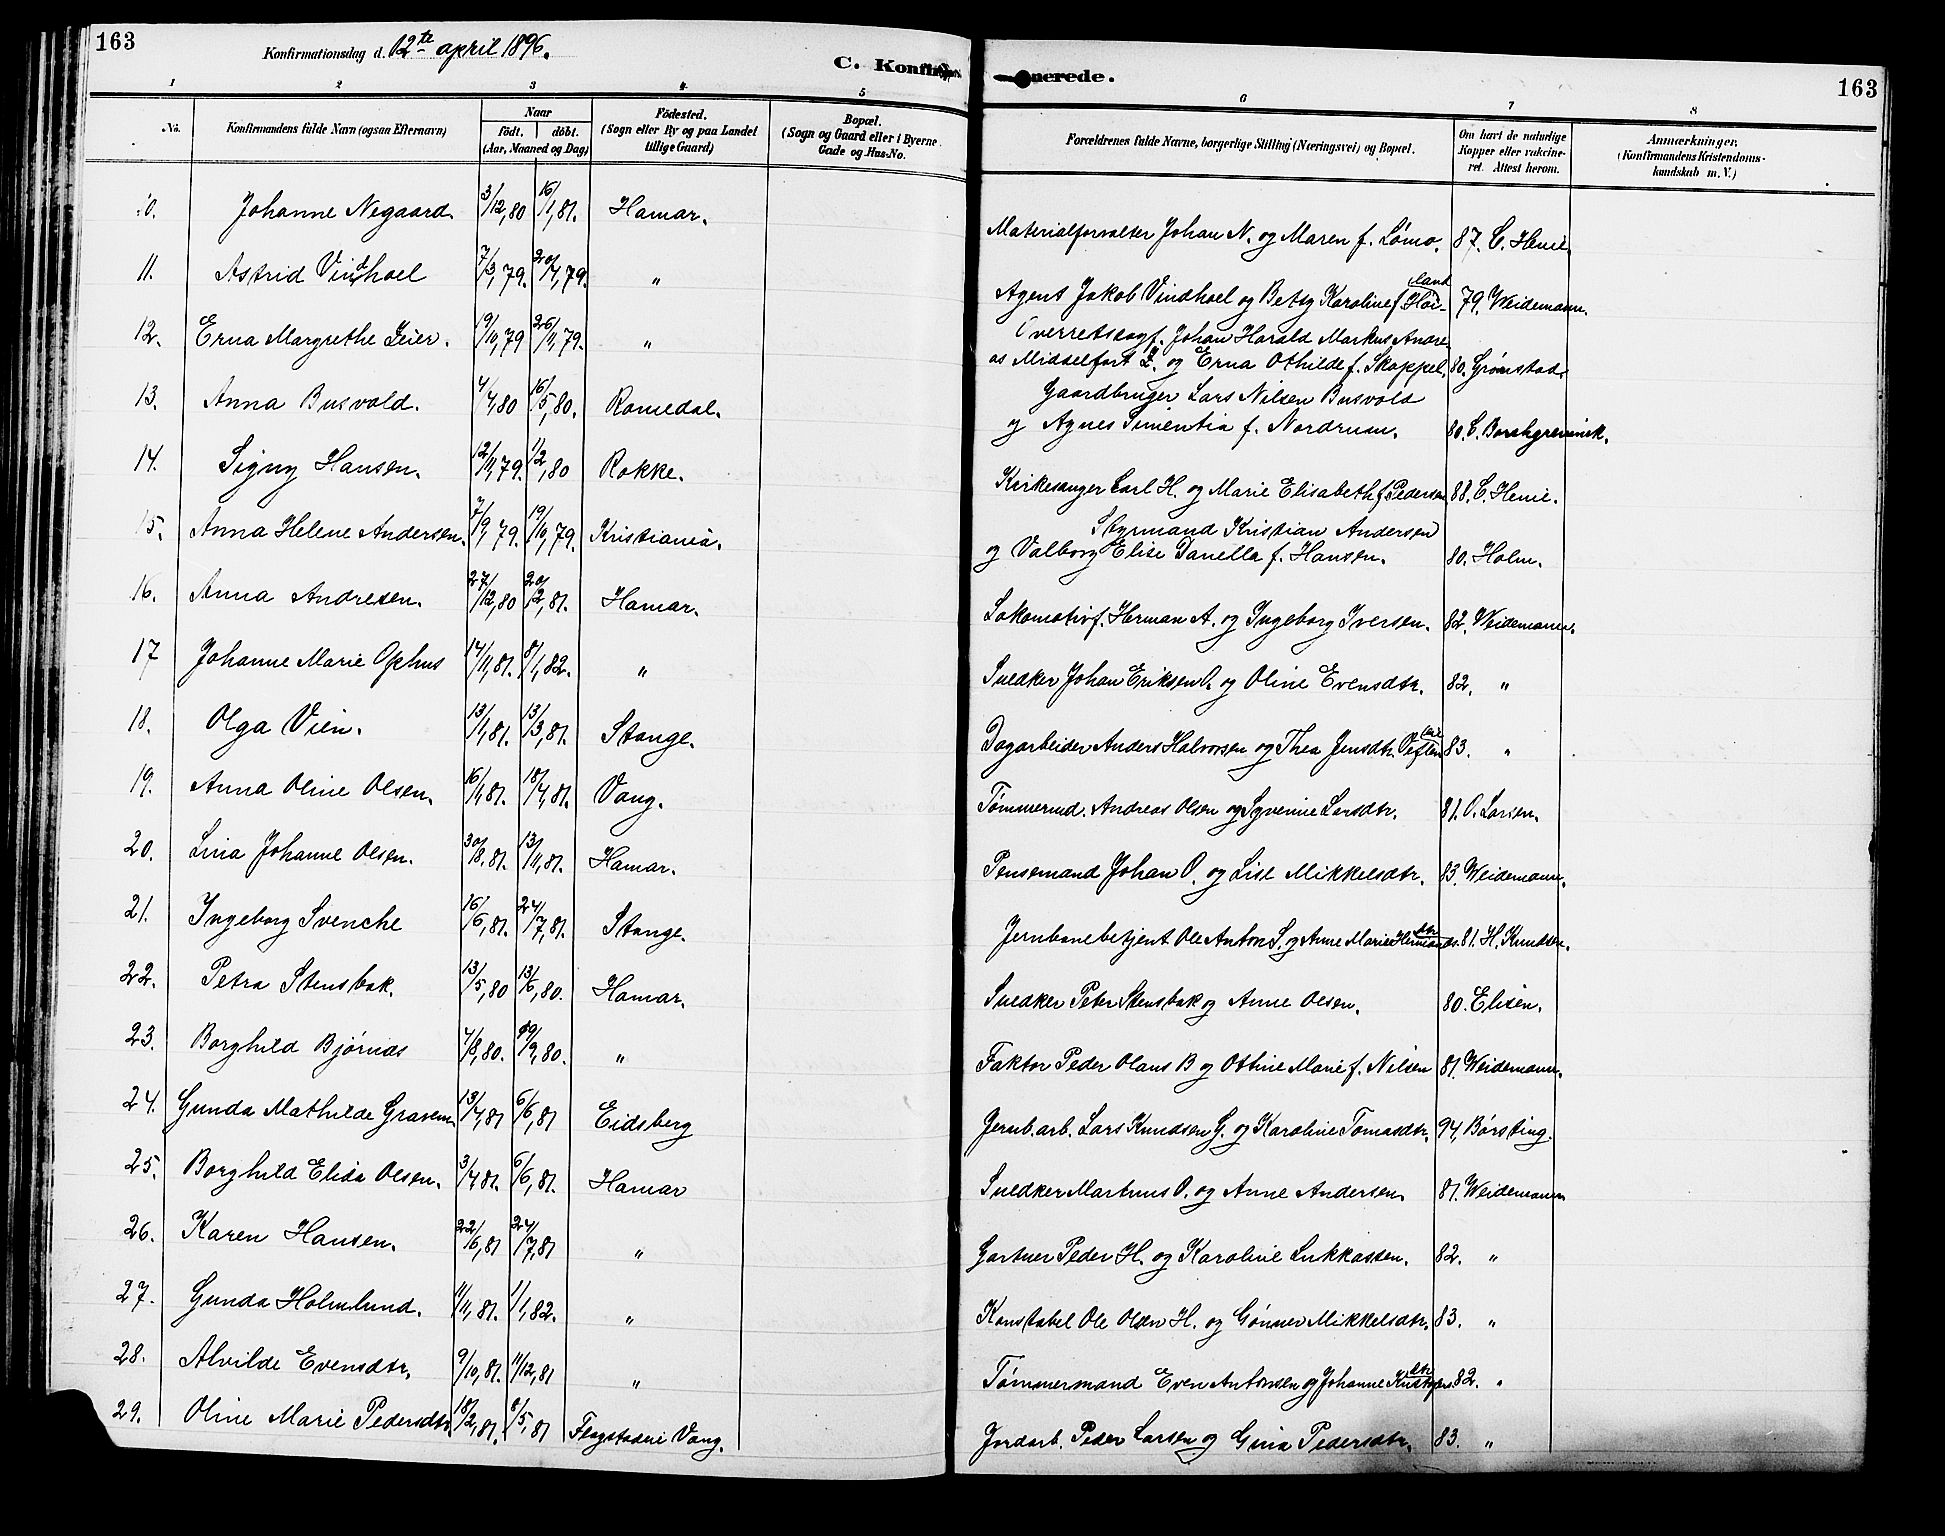 163
Konfirmationsdag d. 12te april 1896.
C. Konfirmerede.
163
1 2 3 4 5 6 7 8
No.
Konfirmandens fulde Navn (ogsaa Efternavn)
Naar
født. døbt.
(Aar, Maaned og Dag)
Fødested.
(Sogn eller By og paa Landet
tillige Gaard)
Bopæl.
(Sogn og Gaard eller i Byerne
Gade og Hus-No.
Forældrenes fulde Navne, borgerlige Stilling (Næringsvei) og Bopæl.
Om havt de naturlige
Kopper eller vakcine-
ret. Attest herom.
Anmærkninger,
(Konfirmandens Kristendoms-
kundskab m. V.)
10. Johanne Negaard. 3/12,80 16/1,81. Hamar. Materialforvalter Johan N. og Maren f. Lømo. 87. C. Henie.
11. Astrid Vindhoel 7/3,79. 20/4,79. " Agent Jakob Vindhoel og Betsy Karoline f. Høi-land 79. Weidemann.
12. Erna Margrethe Zeier. 19/10,79 26/11,79. " Overretssagf. Johan Harald Markus Andre-
as Middelfart Z. og Erna Othilde f. Skappel. 80. Grønstad.
13. Anna Busvold. 4/4,80 16/5,80. Romedal. Gaardbruger Lars Nilsen Busvold
og Agnes Simentia f. Nordrum. 80. C. Borchgrevinck.
14. Signy Hansen. 12/11,79. 1/2,80 Rokke. Kirkesanger Carl H. og Marie Elisabeth f. Pedersen 88. C. Henie.
15. Anna Helene Andersen. 7/9,79. 19/10,79. Kristiania. Styrmand Kristian Andersen
og Valborg Elise Danella f. Hansen. 80. Holm.
16. Anna Andresen. 27/12,80 20/2,81. Hamar. Lokomotivf. Herman A. og Ingeborg Iversen. 82. Weidemann.
17 Johanne Marie Ophus 14/11,81. 8/1,82. " Snedker Johan Eriksen O. og Oline Evensdtr. 82. "
18. Olga Vien. 13/1,81. 13/3,81. Stange. Dagarbeider Anders Halvorsen og Thea Jensdtr. 83. "
19. Anna Oline Olsen. 16/1,81. 18/4,81. Vang. Tømmermd. Andreas Olsen og Syverine Larsdtr. 81. O. Larsen.
20. Lina Johanne Olsen. 30/8.81. 13/11,81. Hamar. Pensemand Johan O. og Lise Mikkelsdtr. 83. Weidemann.
21. Ingeborg Svenche 16/6,81. 24/7,81. Stange. Jernbanebetjent Ole Anton S. og Anne Marie 81. H. Knudsen.
22. Petra Stensbak. 13/5,80 13/6,80. Hamar. Snedker Peter Stensbak og Anne Olsen. 80. Elisen.
23. Borghild Bjørnås 4/8,80. 19/9,80. " Faktor Peder Olaus B og Ottine Marie f. Nilsen 81. Weidemann.
24. Gunda Mathilde Gravem 13/4,81 6/6,81 Eidsberg Jernb.arb. Lars Knudsen G. og Karoline Tomasdtr. 94, Børsting.
25. Borghild Elida Olsen. 3/4,81. 6/6,81. Hamar Snedker Martinus O. og Anne Andersen. 81. Weidemann
26. Karen Hansen. 22/6,81 24/7,81 " Gartner Peder H. og Karoline Lukkassen. 82. "
27. Gunda Holmlund. 11/11,81. 1/1,82. " Konstabel Ole Olsen H. og Gønner Mikkelsdtr. 83. "
28. Alvilde Evensdtr. 9/10,81. 11/12,81 " Tømmermand Even Antonsen og Johanne Kristofersdtr 82. "
29. Oline Marie Pedersdtr 18/2,81. 8/5,81 Flagstadeie Vang. Jordarb. Peder Larsen og Gina Pedersdtr. 83. "